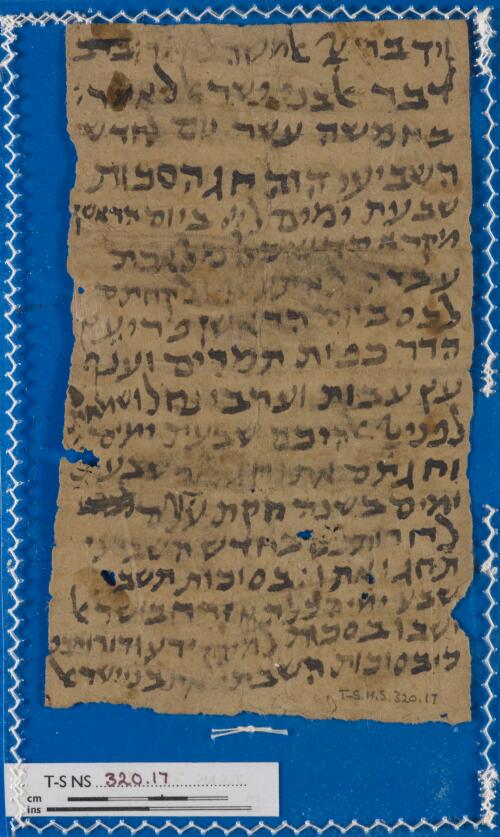 וידבר יי אל משה
דבר אל בני ישראל לאמר
בחמשה עשר יום לחדש
השביעי הזה חג הסכות
שבעת ימים ליי ביום הראשון
מקרא קדש כל מלאכת
עבדה לא ולקחתם
לכם ביום הראשון פרי עץ
הדר כפות תמרים וענף
עץ עבות וערבי נחל ושמחתם
לפני יי אלהיכם שבעת ימים
וחגתם אתו שבעת
ימים בשנה חקת עולם
לדרתיכם בחדש השביעי
תחגו אתו בסוכות תשבו
שבעת ימים כל האזרח בישראל
ישבו בסכות למען ידעו דורותיכם
כי בסוכות השבתי את בני ישראל
T-S N.S. 320.17
T-S NS 320.17
cm
ins